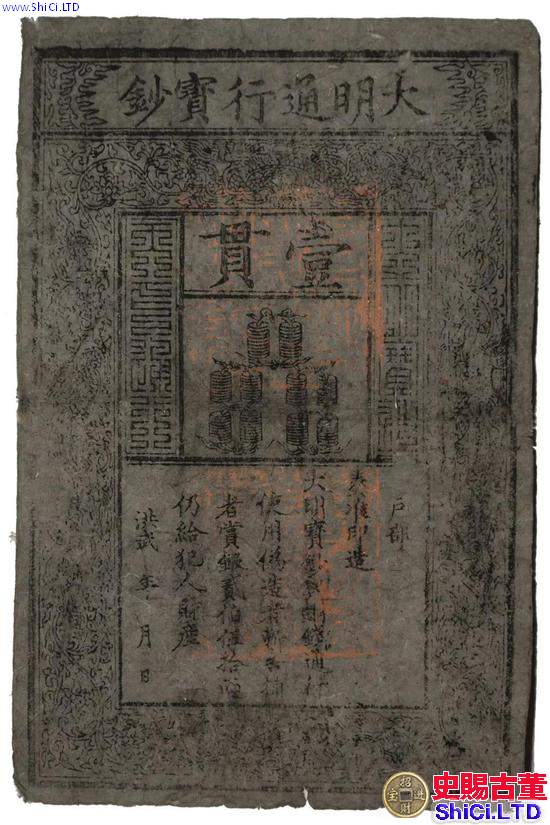 www.ShiCi.LTD
大明通行寶鈔
壹貫
戶部
奏准印造
大明寶鈔與銅錢通行
使用偽造者斬告捕
者賞銀貳伯伍拾兩
仍給犯人財產
洪武 年 月 日
招財進宝
史賜古董
ShiCi.LTD